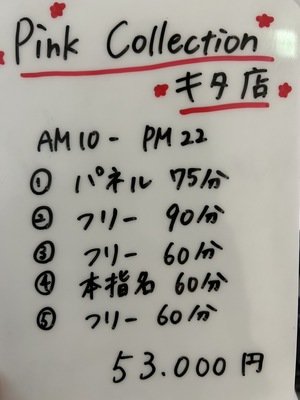 Pink Collection
キタ店
AM10 - PM22
① パネル 75分
② フリー 90分
③ フリー 60分
④ 本指名 60分
⑤ フリー 60分
53.000円